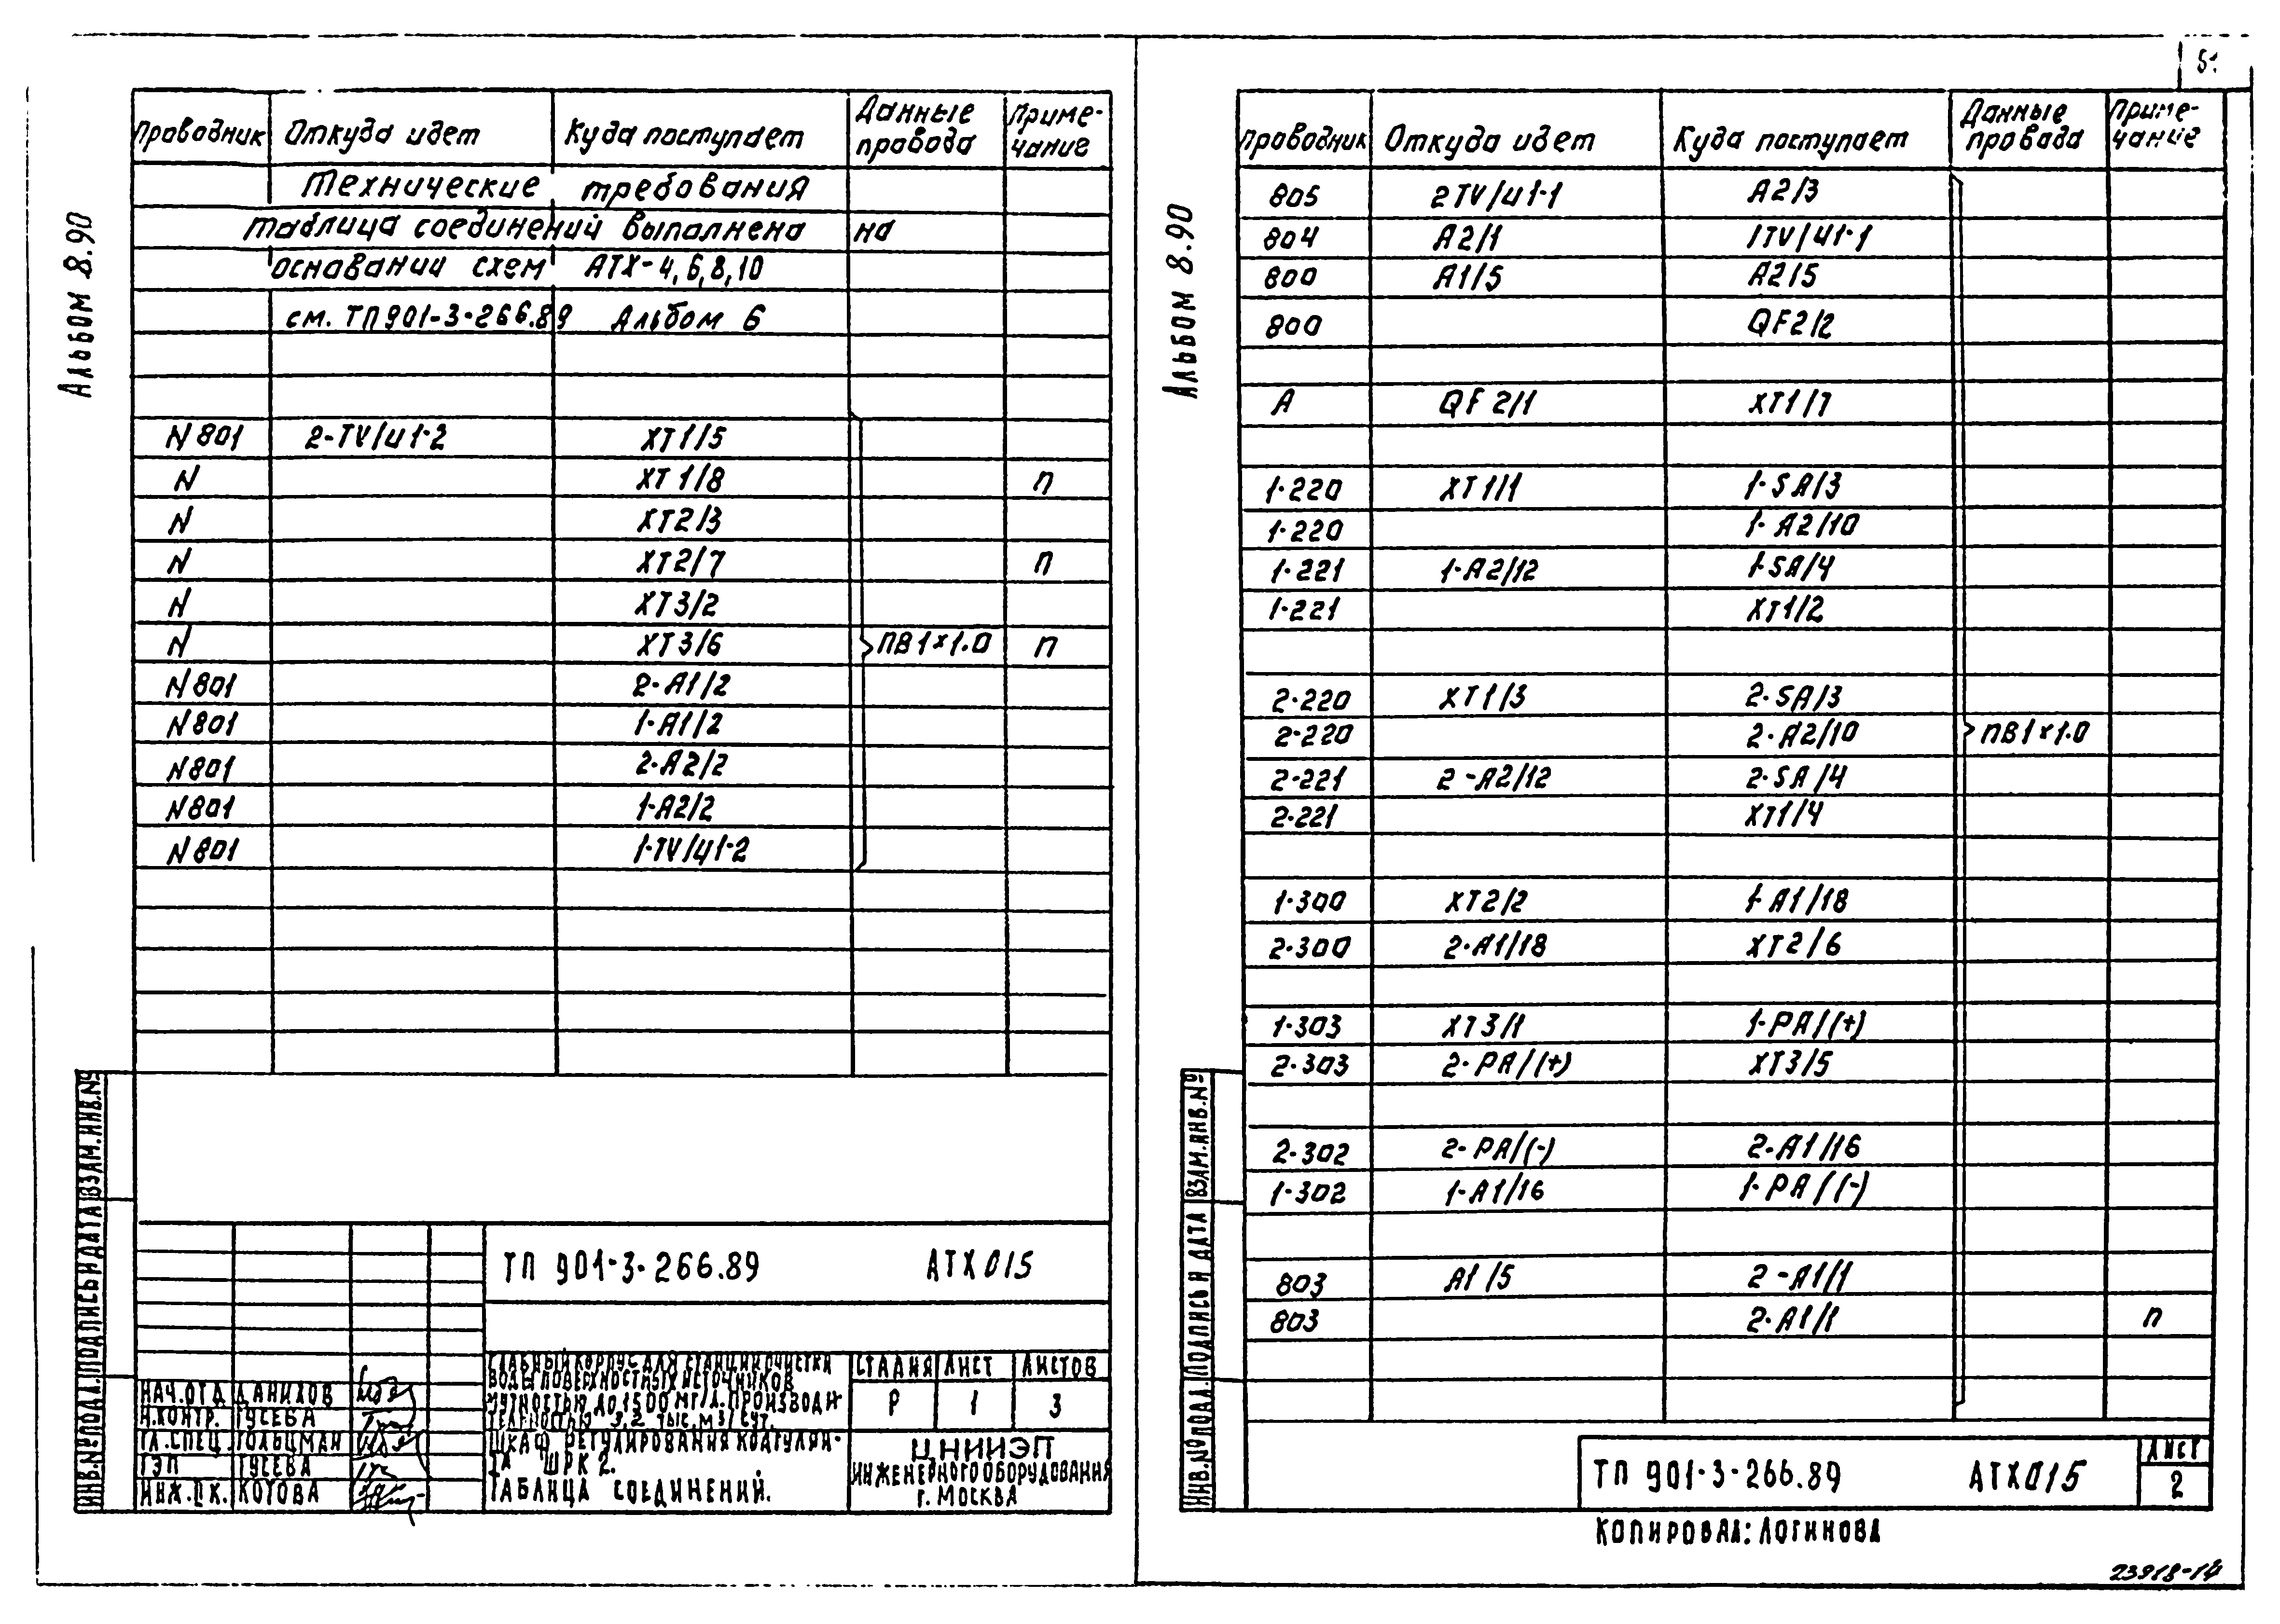 51
Альбом 8.90
Проводник Откуда идет Куда поступает Данные провода Примечание
Технические требования
таблица соединений выполнена на
основании схем АТХ-4,6,8,10
см. ТП901-3-266.89 Альбом 6
N801 2-TV/И1-2 XT1/5
N XT1/8 П
N XT2/3
N XT2/7 П
N XT3/2
N XT3/6 ПВ1×1.0 П
N801 2-A1/2
N801 1-A1/2
N801 2-A2/2
N801 1-A2/2
N801 1-TV/И1-2
ТП 901-3-266.89 АТХ015
ГЛАВНЫЙ КОРПУС ДЛЯ СТАНЦИИ ОЧИСТКИ
ВОДЫ ПОВЕРХНОСТНЫХ ИСТОЧНИКОВ
МУТНОСТЬЮ ДО 1500 МГ/Л. ПРОИЗВОДИ-
ТЕЛЬНОСТЬЮ 3.2 ТЫС. М3/СУТ.
СТАДИЯ ЛИСТ ЛИСТОВ
Р 1 3
НАЧ.ОТД. ДАНИЛОВ
Н.КОНТР. ГУСЕВА
ГЛ.СПЕЦ. ГОЛЬЦМАН
ГЭП ГУСЕВА
ИНЖ.IК. КОТОВА
ШКАФ РЕГУЛИРОВАНИЯ КОАГУЛЯН-
ТА ШРК 2.
ТАБЛИЦА СОЕДИНЕНИЙ.
ЦНИИЭП
ИНЖЕНЕРНОГО ОБОРУДОВАНИЯ
Г. МОСКВА
ИНВ.№ПОДЛ. ПОДПИСЬ И ДАТА ВЗАМ.ИНВ.№
Альбом 8.90
Проводник Откуда идет Куда поступает Данные провода Примечание
805 2TV/И1-1 A2/3
804 A2/1 1TV/И1-1
800 A1/5 A2/5
800 QF2/2
A QF2/1 XT1/7
1-220 XT1/1 1-SA/3
1-220 1-A2/10
1-221 1-A2/12 1-SA/4
1-221 XT1/2
2-220 XT1/3 2-SA/3
2-220 2-A2/10 ПВ1×1.0
2-221 2-A2/12 2-SA/4
2-221 XT1/4
1-300 XT2/2 1-A1/18
2-300 2-A1/18 XT2/6
1-303 XT3/1 1-PA/(+)
2-303 2-PA/(+) XT3/5
2-302 2-PA/(-) 2-A1/16
1-302 1-A1/16 1-PA/(-)
803 A1/5 2-A1/1
803 2-A1/1 П
ТП 901-3-266.89 АТХ015 ЛИСТ 2
ИНВ.№ПОДЛ. ПОДПИСЬ И ДАТА ВЗАМ.ИНВ.№
КОПИРОВАЛ: ЛОГИНОВА
23918-14